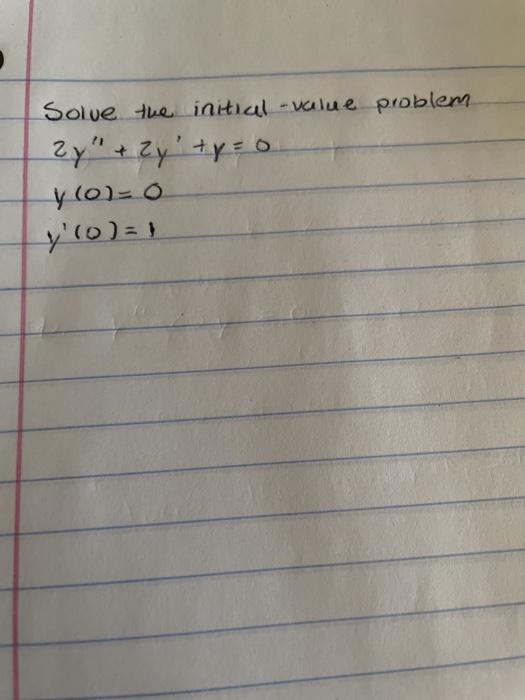 Solve the initial-value problem
2y" + 2y' + y = 0
y(0) = 0
y'(0) = 1